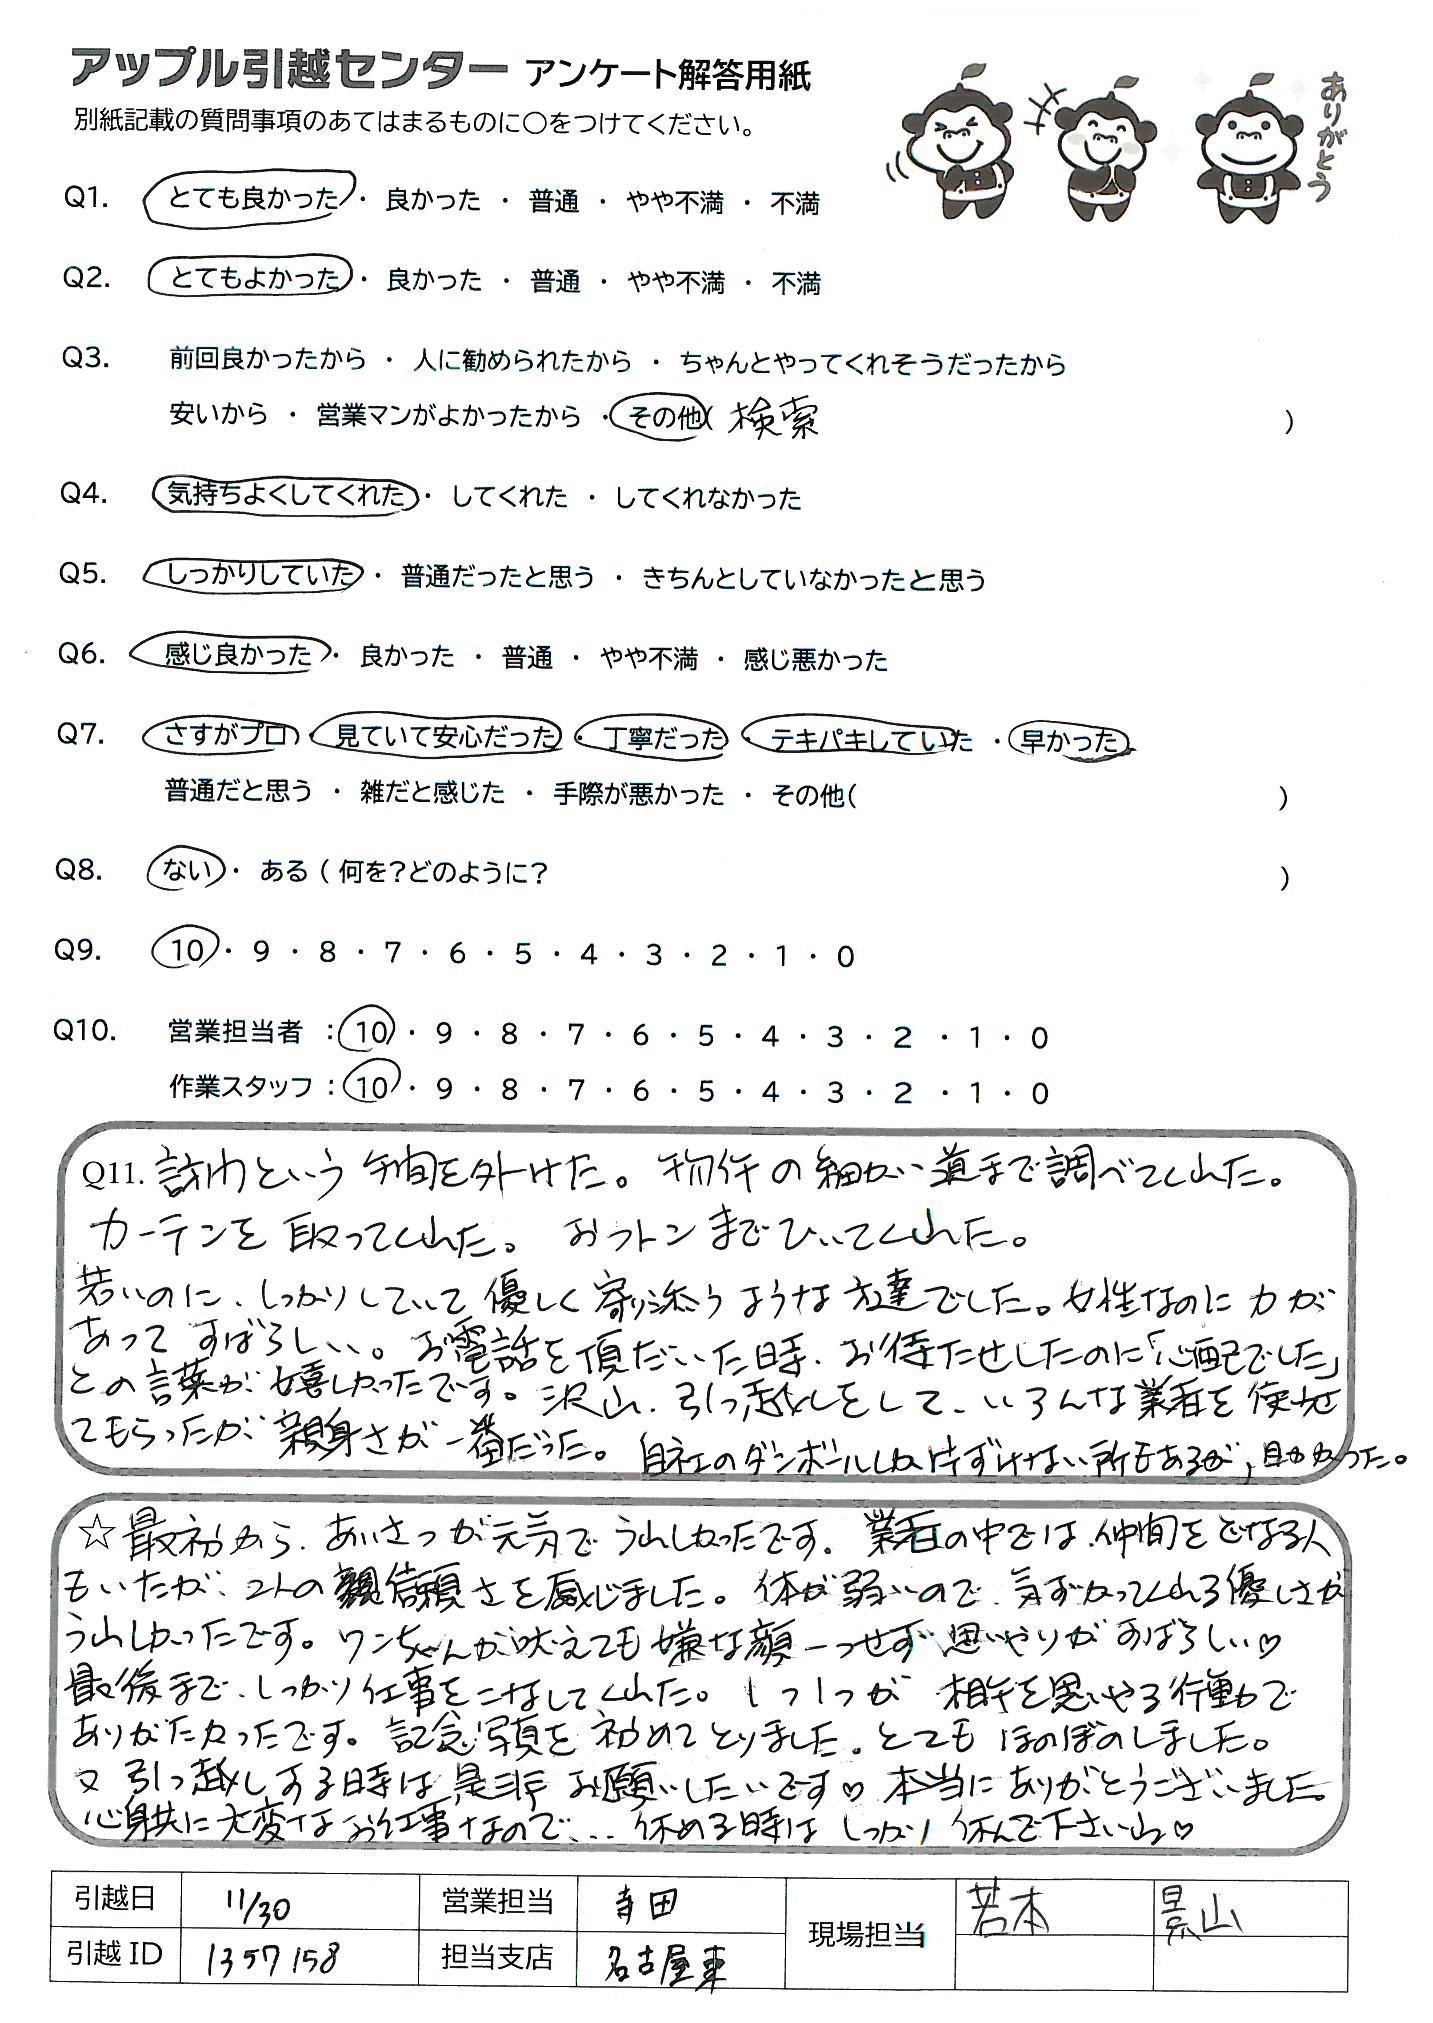 アップル引越センター アンケート解答用紙
別紙記載の質問事項のあてはまるものに○をつけてください。
ありがとう
Q1. とても良かった ・ 良かった ・ 普通 ・ やや不満 ・ 不満
Q2. とてもよかった ・ 良かった ・ 普通 ・ やや不満 ・ 不満
Q3. 前回良かったから ・ 人に勧められたから ・ ちゃんとやってくれそうだったから
安いから ・ 営業マンがよかったから ・ その他( 検索 )
Q4. 気持ちよくしてくれた ・ してくれた ・ してくれなかった
Q5. しっかりしていた ・ 普通だったと思う ・ きちんとしていなかったと思う
Q6. 感じ良かった ・ 良かった ・ 普通 ・ やや不満 ・ 感じ悪かった
Q7. さすがプロ ・ 見ていて安心だった ・ 丁寧だった ・ テキパキしていた ・ 早かった
普通だと思う ・ 雑だと感じた ・ 手際が悪かった ・ その他( )
Q8. ない ・ ある ( 何を?どのように? )
Q9. 10 ・ 9 ・ 8 ・ 7 ・ 6 ・ 5 ・ 4 ・ 3 ・ 2 ・ 1 ・ 0
Q10. 営業担当者 : 10 ・ 9 ・ 8 ・ 7 ・ 6 ・ 5 ・ 4 ・ 3 ・ 2 ・ 1 ・ 0
作業スタッフ : 10 ・ 9 ・ 8 ・ 7 ・ 6 ・ 5 ・ 4 ・ 3 ・ 2 ・ 1 ・ 0
Q11. という 手間を外けた。物件の細かい道まで調べてくれた。
カーテンを取ってくれた。おフトンまでひいてくれた。
若いのに、しっかりしていて優しく寄り添うような方達でした。女性なのに力が
あってすばらしい。お電話を頂だいた時、お待たせしたのに「心配でした」
との言葉が嬉しかったです。沢山、引っ越しをして、いろんな業者を使わせ
てもらったが親身さが一番だった。自社のダンボールしか片ずけない所もあるが、助かった。
☆最初から、あいさつが元気でうれしかったです。業者の中では、仲間をどなる人
もいたが、2人の信頼さを感じました。体が弱いので、気ずかってくれる優しさが
うれしかったです。ワンちゃんが吠えても嫌な顔一つせず思いやりがすばらしい♡
最後まで、しっかり仕事をこなしてくれた。1つ1つが相手を思いやる行動で
ありがたかったです。記念写真を初めてとりました。とてもほのぼのしました。
又引っ越しする時は是非お願いしたいです♡本当にありがとうございました。
心身共に大変なお仕事なので…休める時はしっかり休んで下さいね♡
引越日 11/30 営業担当 寺田 現場担当 若本 景山
引越ID 1357158 担当支店 名古屋東